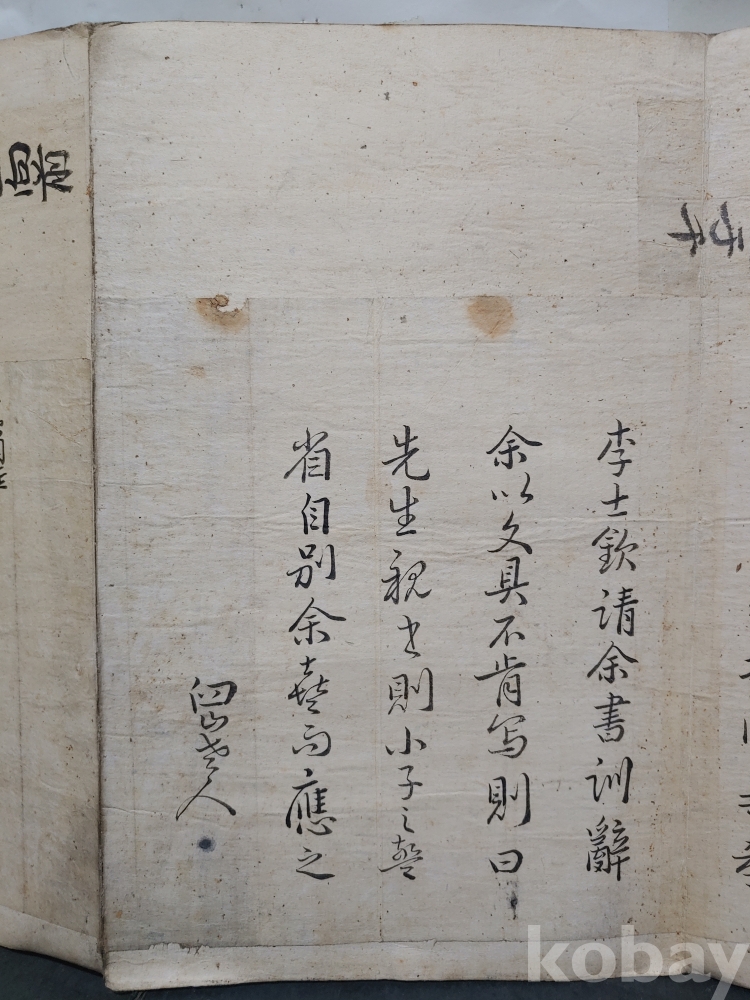 李士欽請余書訓辭
余以文具不肯写則曰
先生親書則小子之警
省自別余喜而應之
山老人
kobay